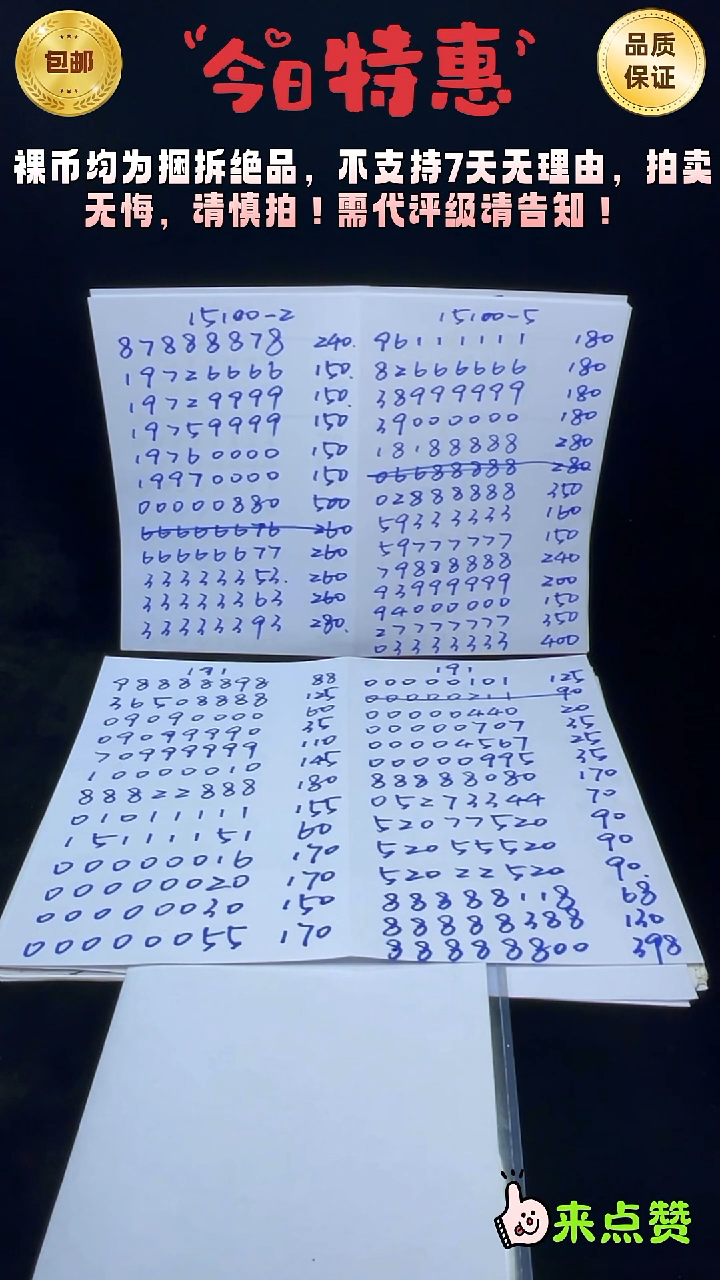 包邮
“今日特惠”
品质
保证
裸币均为捆拆绝品，不支持7天无理由，拍卖
无悔，请慎拍！需代评级请告知！
15100-2
87888878 240.
19726666 150.
19729999 150.
19759999 150
19760000 150
19970000 150
00000880 500
66666676 260
66666677 260
33333353. 260
33333363 260
33333393 280.
15100-5
96111111 180
82666666 180
38999999 180
39000000 180
18188888 280
06688888 280
02888888 350
59333333 160
59777777 150
79888888 240
93999999 200
94000000 150
27777777 350
03333333 400
191
98888898 88
36508888 125
09090000 60
09099990 35
70999999 110
10000010 145
88822888 180
01011111 155
15111151 60
00000016 170
00000020 170
00000030 150
00000055 170
191
00000101 125
00000211 90
00000440 20
00000707 35
00004567 25
00000995 35
88888080 170
05273344 70
52077520 90
52055520 90
52022520 90.
88888118 68
88888388 130
88888800 398
来点赞